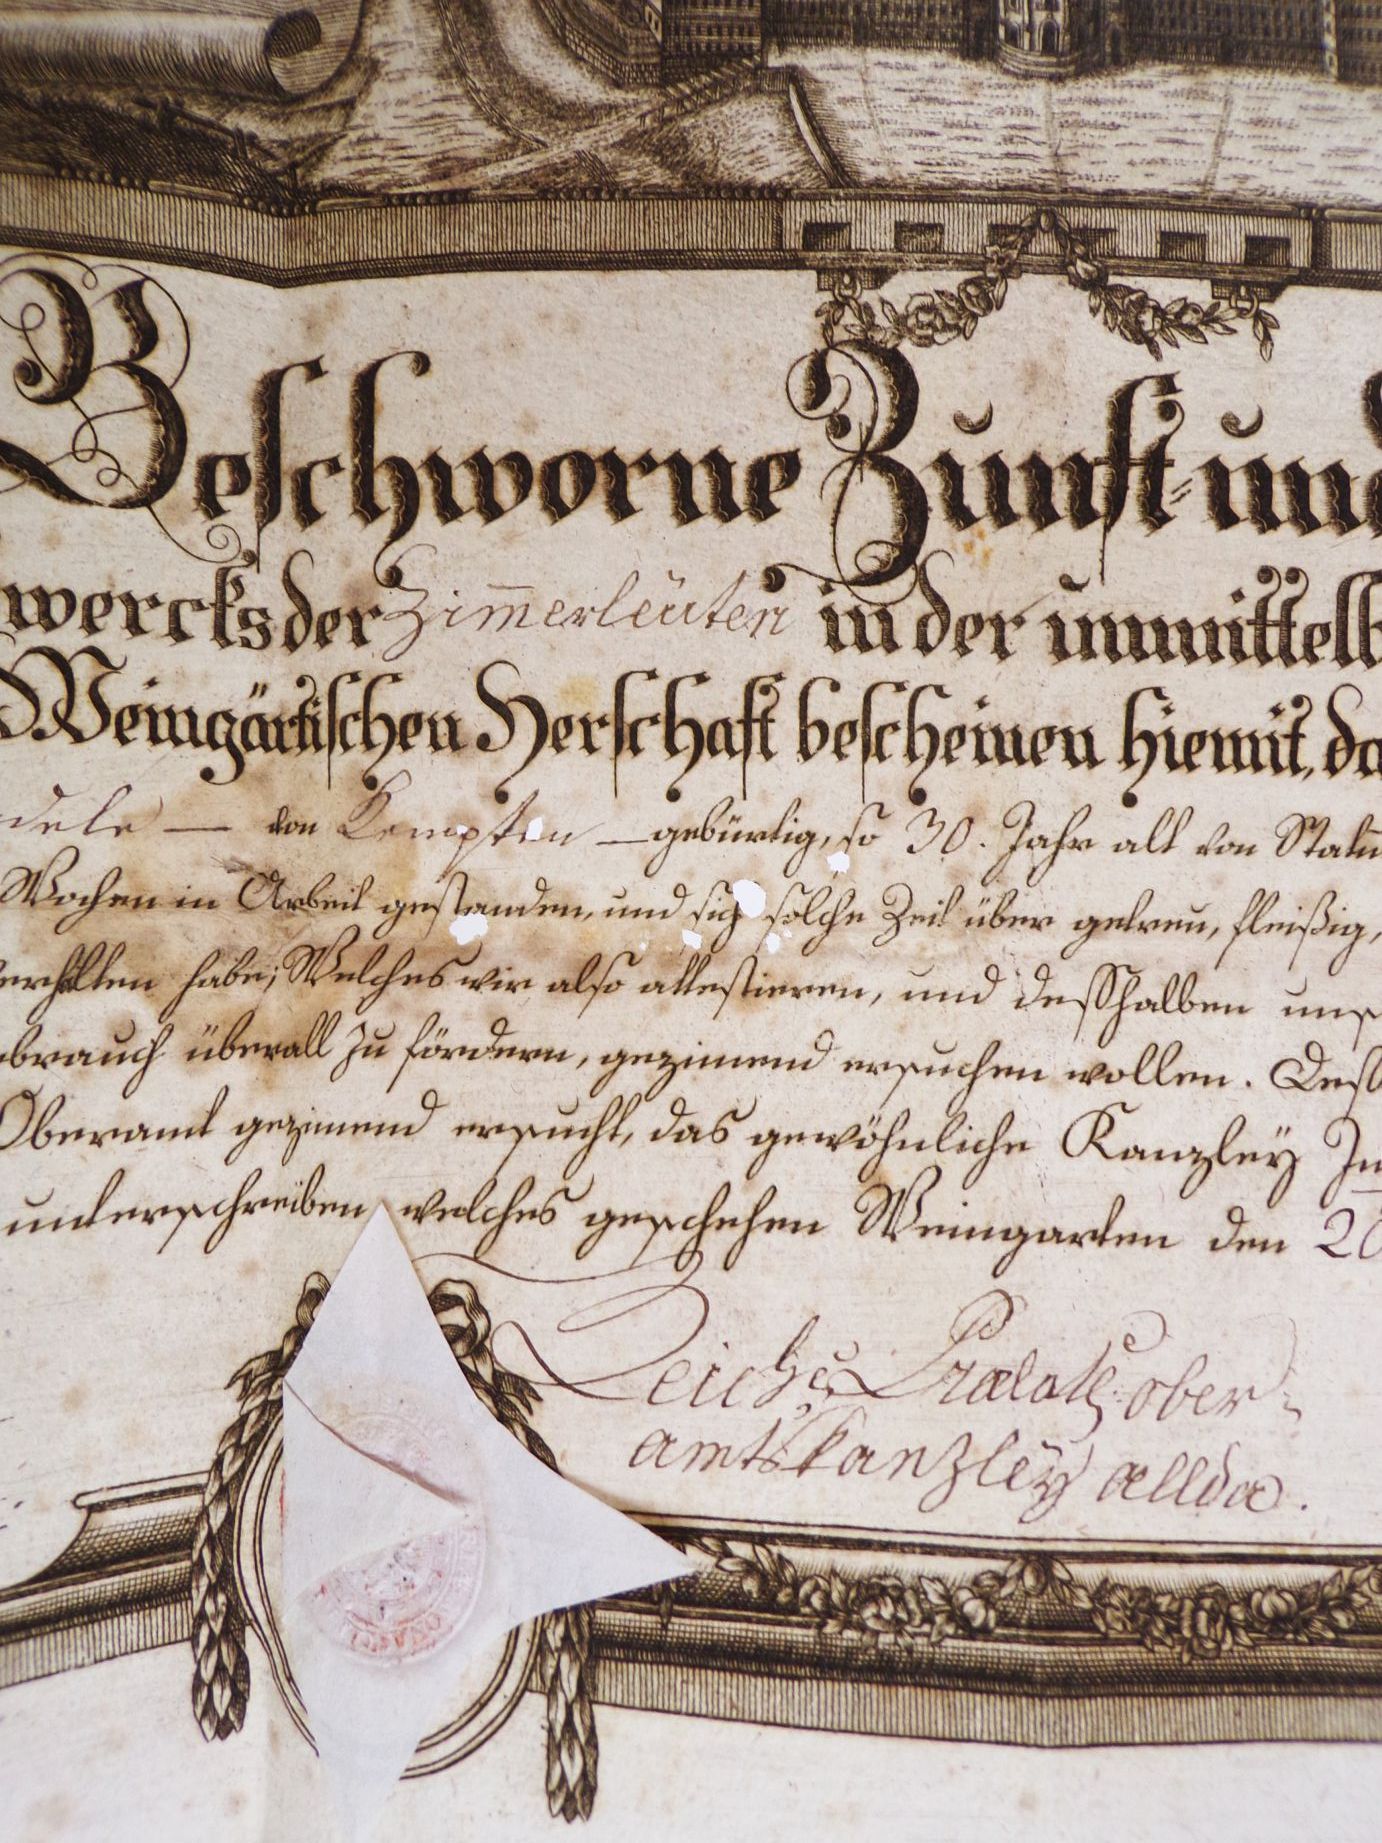 Geschworne Zunft- und
wercks der Zim̅erleüten in der unmittelb
Weingärtischen Herschaft bescheinen hiemit, da
dele — von Kempten — gebürtig, so 30. Jahr alt von Statu
Wochen in Arbeit gestanden, und sich solche Zeit über getreu, fleißig,
verhalten habe; Welches wir also attestieren, und desshalben uns
brauch überall zu fördern, gezimend ersuchen wollen. Dess
Oberamt gezimend ersucht, das gewöhnliche Kanzley In
unterschreiben, welches geschehen Weingarten den 20
Reichs Prælatl: ober-
amtskanzley allda.